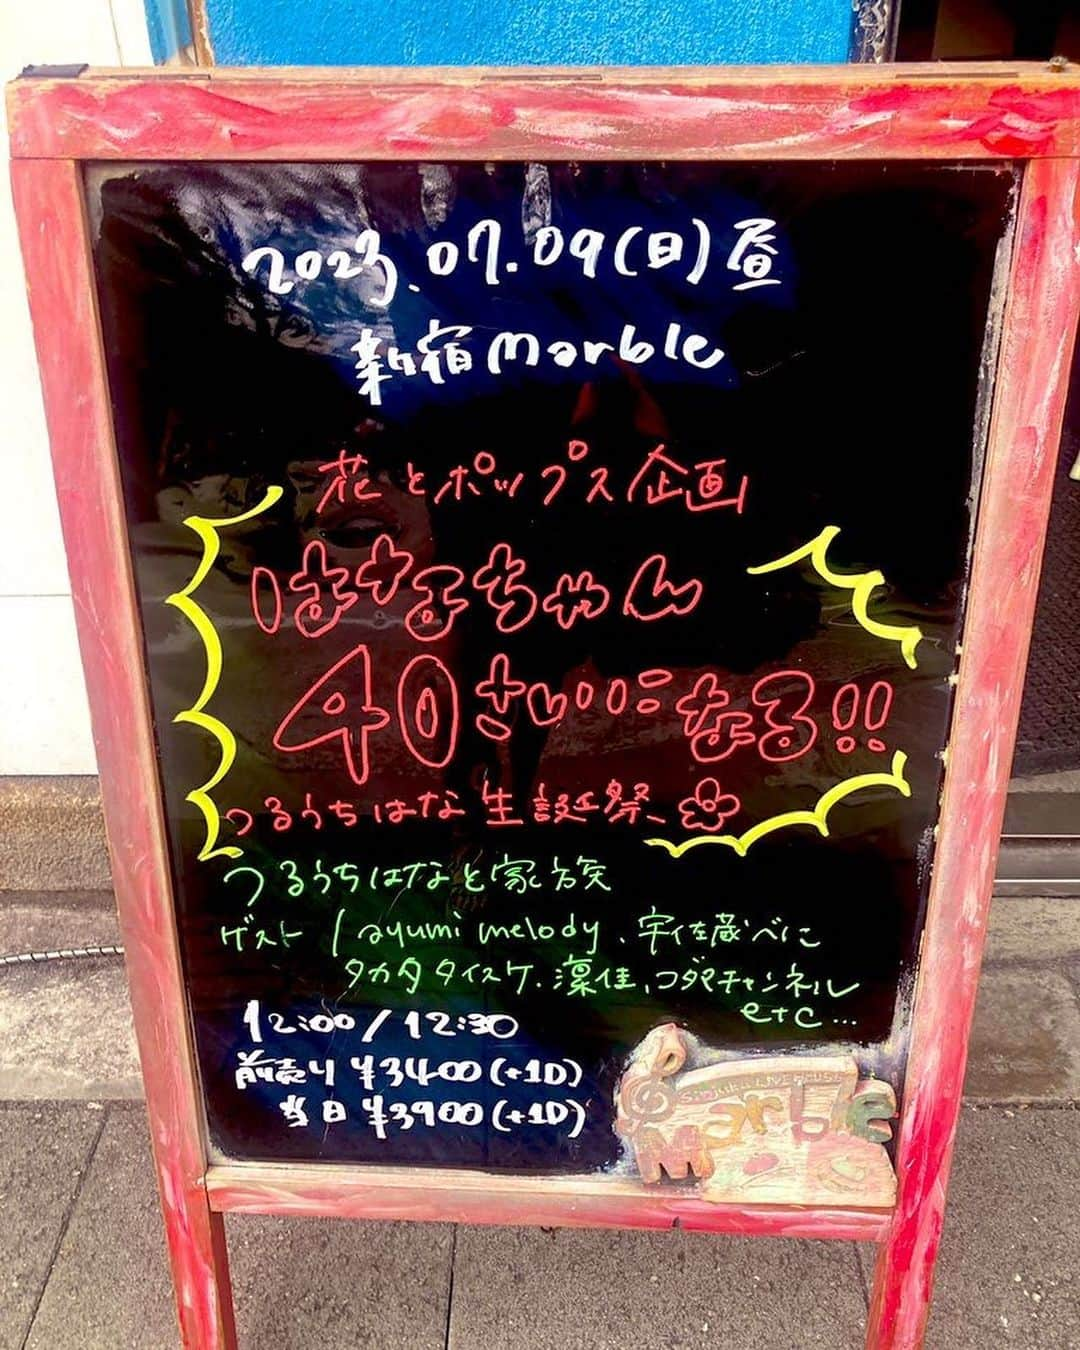 2023.07.09(日)昼
新宿marble
花とポップス企画
はなちゃん
40さいになる!!
つるうちはな生誕祭
つるうちはなと家族
ゲスト/ayumi melody、宇佐蔵べに
タカタタイスケ、凛佳、コダマチャンネル
etc...
12:00/12:30
前売り¥3400(+1D)
当日¥3900(+1D)
Marble